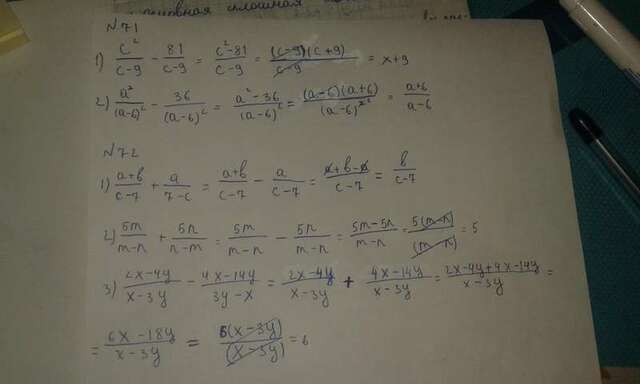 №71
1) c²/(c-9) - 81/(c-9) = (c²-81)/(c-9) = (c-9)(c+9)/(c-9) = x+9
2) a²/(a-6)² - 36/(a-6)² = (a²-36)/(a-6)² = (a-6)(a+6)/(a-6)² = (a+6)/(a-6)
№72
1) (a+b)/(c-7) + a/(7-c) = (a+b)/(c-7) - a/(c-7) = (a+b-a)/(c-7) = b/(c-7)
2) 5m/(m-n) + 5n/(n-m) = 5m/(m-n) - 5n/(m-n) = (5m-5n)/(m-n) = 5(m-n)/(m-n) = 5
3) (2x-4y)/(x-3y) - (4x-14y)/(3y-x) = (2x-4y)/(x-3y) + (4x-14y)/(x-3y) = (2x-4y+4x-14y)/(x-3y) =
= (6x-18y)/(x-3y) = 6(x-3y)/(x-3y) = 6